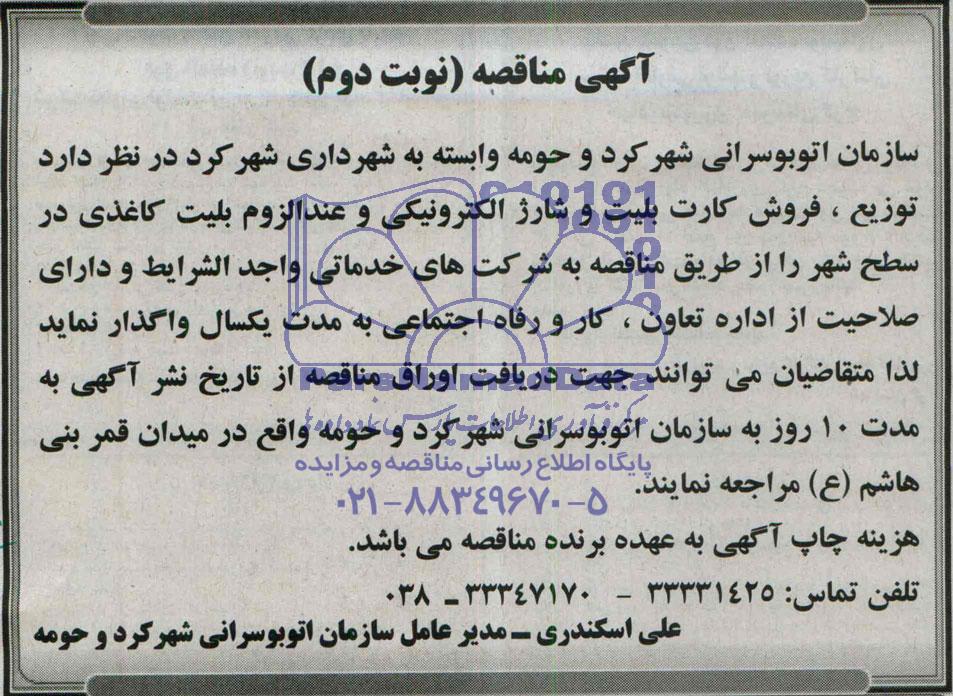 آگهی مناقصه (نوبت دوم)
سازمان اتوبوسرانی شهرکرد و حومه وابسته به شهرداری شهرکرد در نظر دارد
توزیع ، فروش کارت بلیت و شارژ الکترونیکی و عندالزوم بلیت کاغذی در
سطح شهر را از طریق مناقصه به شرکت های خدماتی واجد الشرایط و دارای
صلاحیت از اداره تعاون ، کار و رفاه اجتماعی به مدت یکسال واگذار نماید
لذا متقاضیان می توانند جهت دریافت اوراق مناقصه از تاریخ نشر آگهی به
مدت ۱۰ روز به سازمان اتوبوسرانی شهرکرد و حومه واقع در میدان قمر بنی
هاشم (ع) مراجعه نمایند.
پایگاه اطلاع رسانی مناقصه و مزایده
۰۲۱-۸۸۳۴۹۶۷۰-۵
هزینه چاپ آگهی به عهده برنده مناقصه می باشد.
تلفن تماس: ۳۳۳۳۱۴۲۵ - ۳۳۳۴۷۱۷۰ ـ ۰۳۸
علی اسکندری ــ مدیر عامل سازمان اتوبوسرانی شهرکرد و حومه